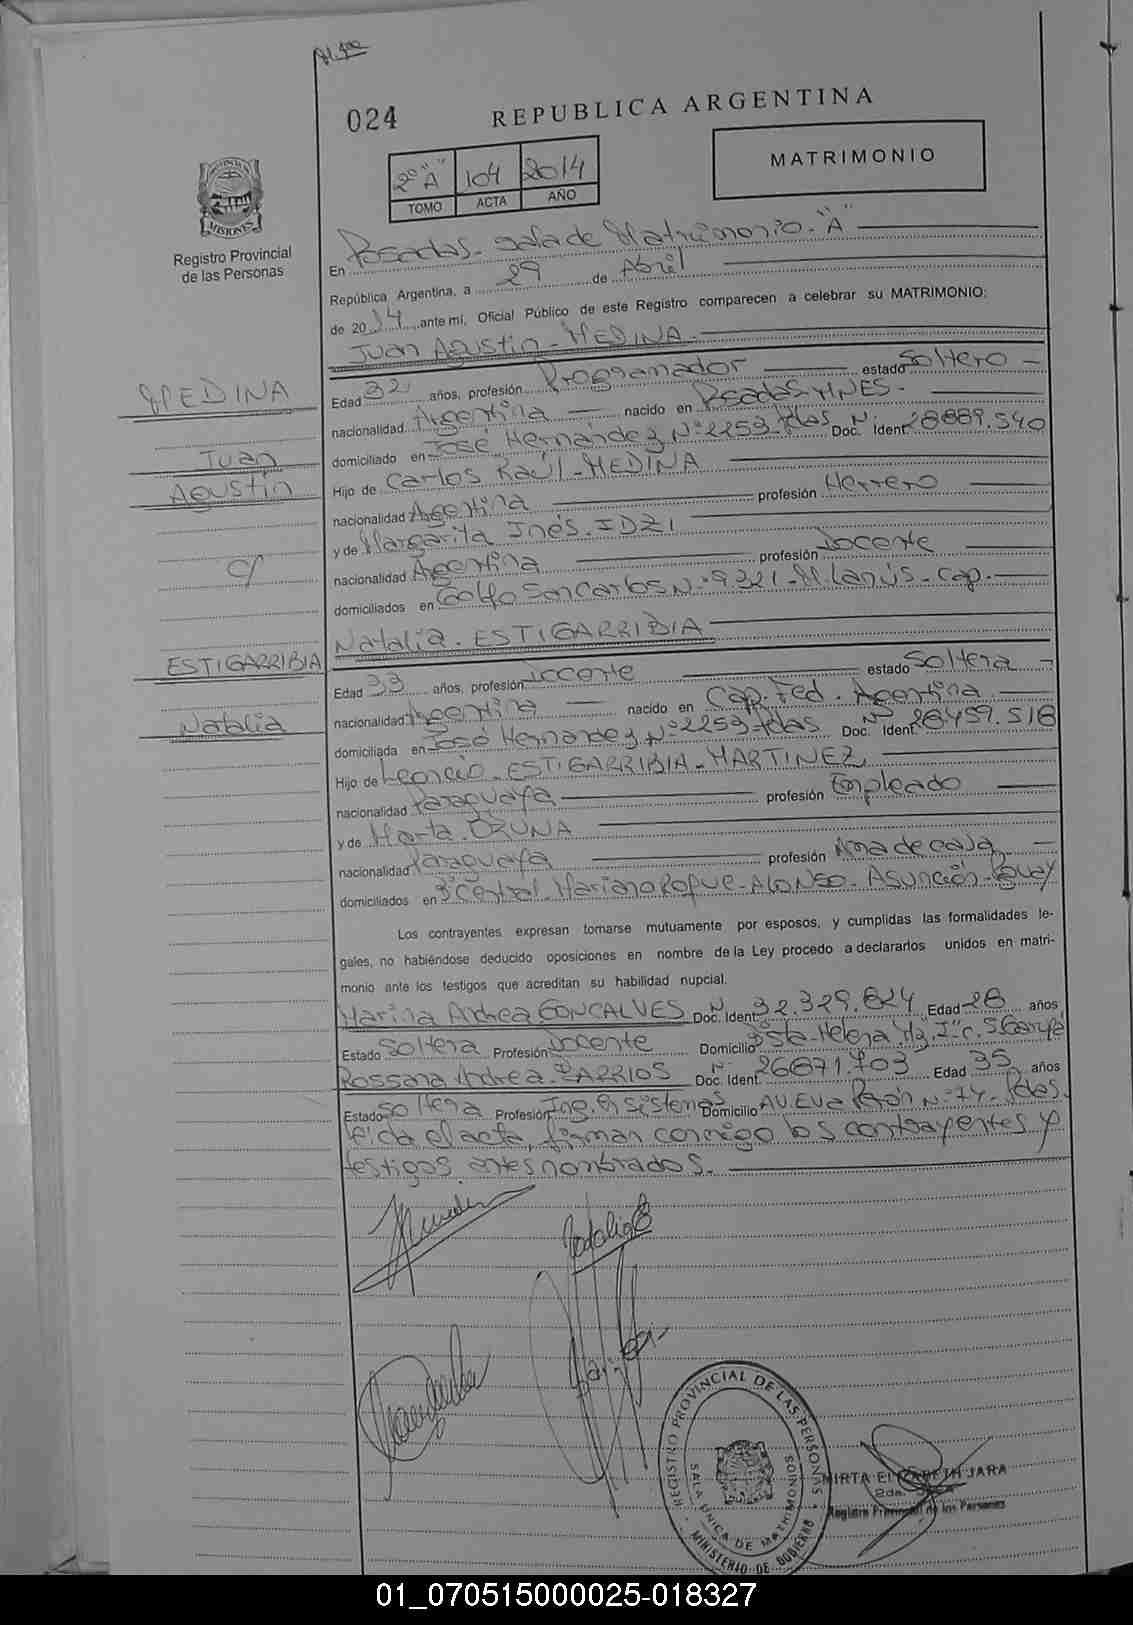 024
REPUBLICA ARGENTINA
MATRIMONIO
2º "A" 104 2014
TOMO ACTA AÑO
MISIONES
Registro Provincial
de las Personas
En Posadas - Sala de Matrimonio - "A"
República Argentina, a 29 de Abril
de 2014, ante mí, Oficial Público de este Registro comparecen a celebrar su MATRIMONIO:
Juan Agustín - MEDINA.
MEDINA
Juan
Agustín
c/
ESTIGARRIBIA
Natalia
Edad 32 años, profesión Programador estado Soltero
nacionalidad Argentina nacido en Posadas - MNES -
domiciliado en José Hernández Nº 2253 - Pdas Doc. Ident. Nº 28889.540
Hijo de Carlos Raúl - MEDINA
nacionalidad Argentina profesión Herrero
y de Margarita Inés. IDZI
nacionalidad Argentina profesión Docente
domiciliados en Golfo San Carlos Nº 9321 - M. Lanús - Cap.
Natalia. ESTIGARRIBIA
Edad 33 años, profesión Docente estado Soltera
nacionalidad Argentina nacido en Cap. Fed. Argentina
domiciliada en José Hernández Nº 2253 - Pdas Doc. Ident. Nº 28459.516
Hijo de Leoncio - ESTIGARRIBIA - MARTINEZ
nacionalidad Paraguaya profesión Empleado
y de Marta. OZUNA
nacionalidad Paraguaya profesión Ama de casa
domiciliados en 3º Central Mariano Roque - ALONSO - Asunción - Pguay
Los contrayentes expresan tomarse mutuamente por esposos, y cumplidas las formalidades le-
gales, no habiéndose deducido oposiciones en nombre de la Ley procedo a declararlos unidos en matri-
monio ante los testigos que acreditan su habilidad nupcial.
Marina Andrea GONCALVES Doc. Ident. Nº 32.329.824 Edad 28 años
Estado Soltera Profesión Docente Domicilio Sta. Helena
Rossana Andrea BARRIOS Doc. Ident. Nº 26871.703 Edad 35 años
Estado Soltera Profesión Ing. en Sistemas Domicilio Av. Eva Perón Nº 74 - Pdas.
Leida el acta, firman conmigo los contrayentes y
testigos antes nombrados.
Natalia E
REGISTRO PROVINCIAL DE LAS PERSONAS
SALA UNICA DE MATRIMONIOS
MINISTERIO DE GOBIERNO
MIRTA ELIZABETH JARA
Registro Provincial de las Personas
01_070515000025-018327